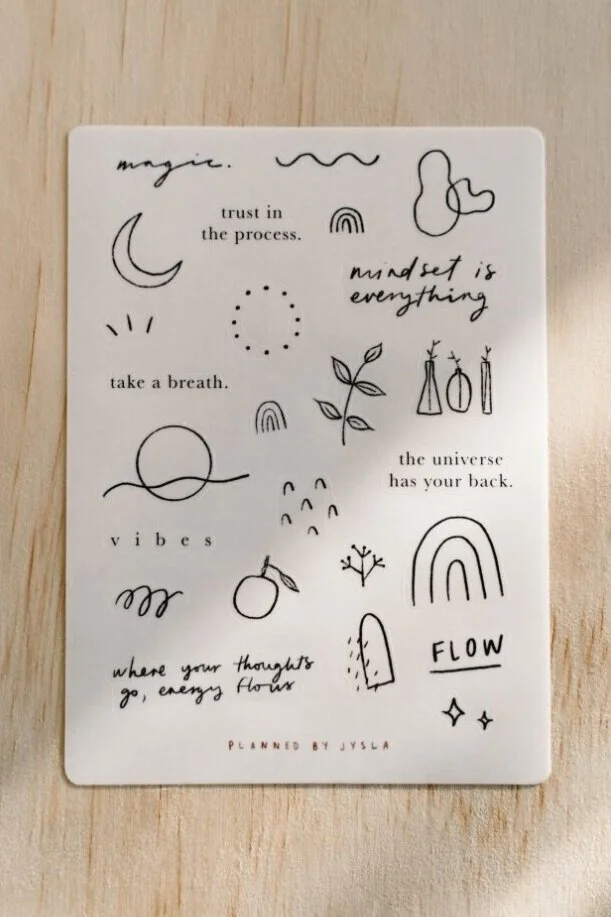 magic.
trust in
the process.
mindset is
everything
take a breath.
the universe
has your back.
vibes
FLOW
where your thoughts
go, energy flows
PLANNED BY JYSLA